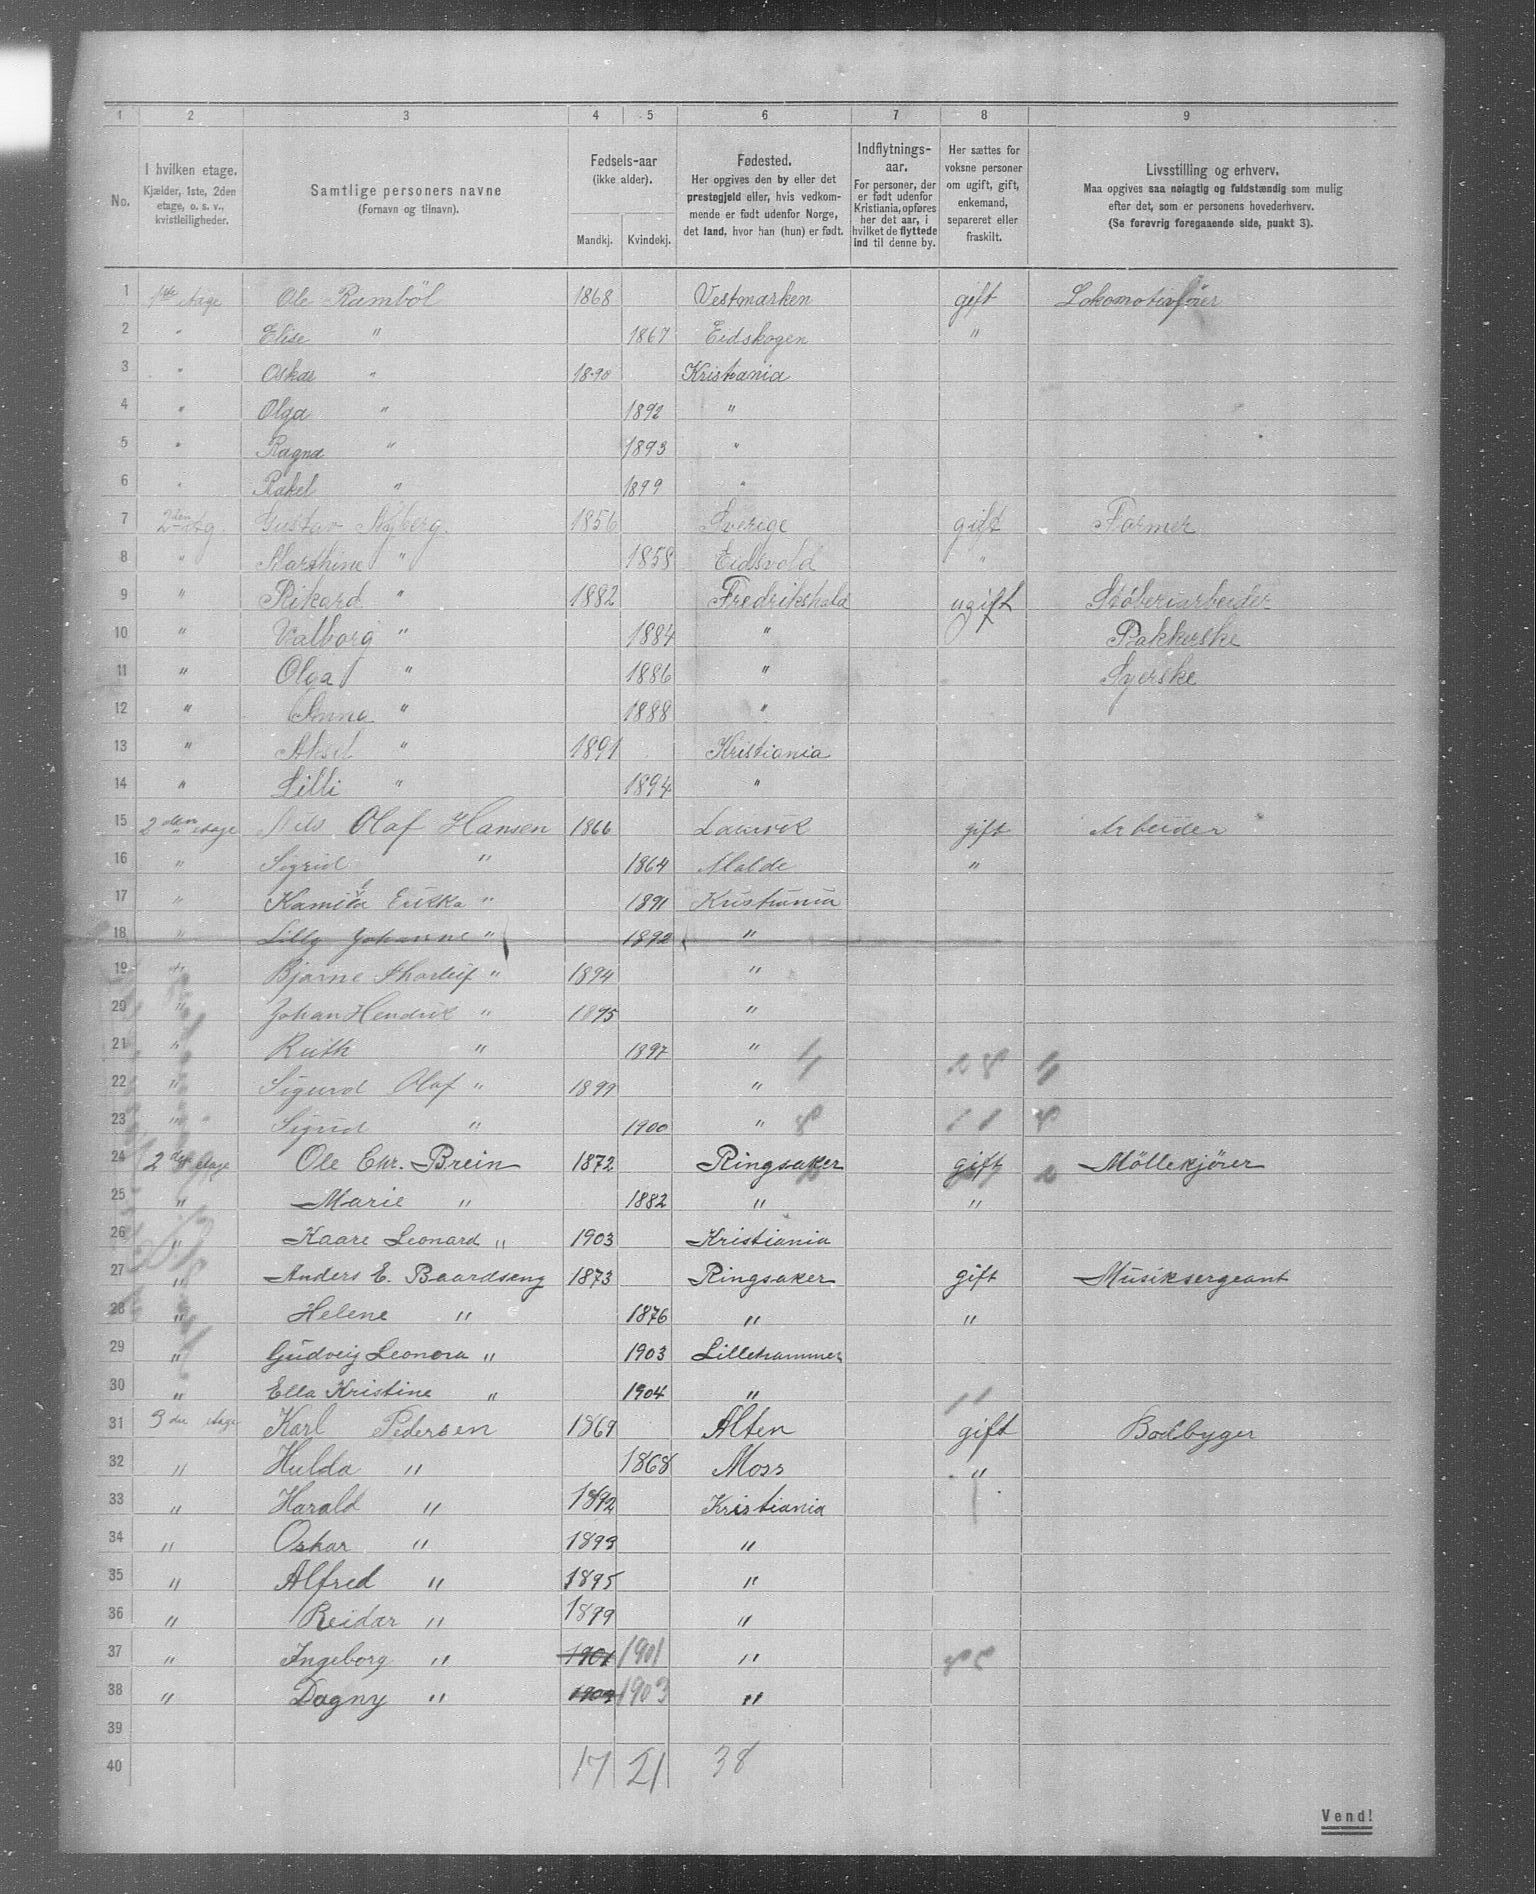 1 2 3 4 5 6 7 8 9
No.
I hvilken etage.
Kjælder, 1ste, 2den
etage, o. s. v.,
kvistleiligheder.
Samtlige personers navne
(Fornavn og tilnavn).
Fødsels-aar
(ikke alder).
Mandkj. Kvindekj.
Fødested.
Her opgives den by eller det
prestegjeld eller, hvis vedkom-
mende er født udenfor Norge,
det land, hvor han (hun) er født.
Indflytnings-
aar.
For personer, der
er født udenfor
Kristiania, opføres
her det aar, i
hvilket de flyttede
ind til denne by.
Her sættes for
voksne personer
om ugift, gift,
enkemand,
separeret eller
fraskilt.
Livsstilling og erhverv.
Maa opgives saa nøiagtig og fuldstændig som mulig
efter det, som er personens hovederhverv.
(Se forøvrig foregaaende side, punkt 3).
1 1ste etage Ole Ramböl 1868 Vestmarken gift Lokomotivfører
2 " Elise " 1867 Eidskogen "
3 " Oskar " 1890 Kristiania
4 " Olga " 1892 "
5 " Ragna " 1893 "
6 " Rakel " 1899 "
7 2den etg. Gustav Nyberg. 1856 Sverige gift Farmer
8 " Marthine " 1858 Eidsvold "
9 " Rikard " 1882 Fredrikshald ugift Støberiarbeider
10 " Valborg " 1884 " Pakkerske
11 " Olga " 1886 " Syerske
12 " Anna " 1888 "
13 " Aksel " 1891 Kristiania
14 " Lilli " 1894 "
15 2den etage Nils Olaf Hansen 1866 Laurvik gift Arbeider
16 " Sigrid " 1864 Molde "
17 " Kamilla Erikka " 1891 Kristiania
18 " Lilly Johanne " 1892 "
19 " Bjarne Tharleif " 1894 "
20 " Johan Hendrik " 1895 "
21 " Ruth " 1897 "
22 " Sigurd Olaf " 1899 "
23 " Sigrid " 1900 "
24 2den etage Ole Chr. Brein 1872 Ringsaker gift Möllekjörer
25 " Marie " 1882 " "
26 " Kaare Leonard " 1903 Kristiania
27 " Anders E. Baardseng 1873 Ringsaker gift Musiksergeant
28 " Helene " 1876 " "
29 " Gudveig Leonora " 1903 Lillehammer
30 " Ella Kristine " 1904 "
31 3die etage Karl Pedersen 1869 Alten gift Bodbyger
32 " Hulda " 1868 Moss "
33 " Harald " 1892 Kristiania
34 " Oskar " 1893 "
35 " Alfred " 1895 "
36 " Reidar " 1899 "
37 " Ingeborg " 1901 1901 "
38 " Dagny " 1903 1903 "
39
40 17 21 38
Vend!